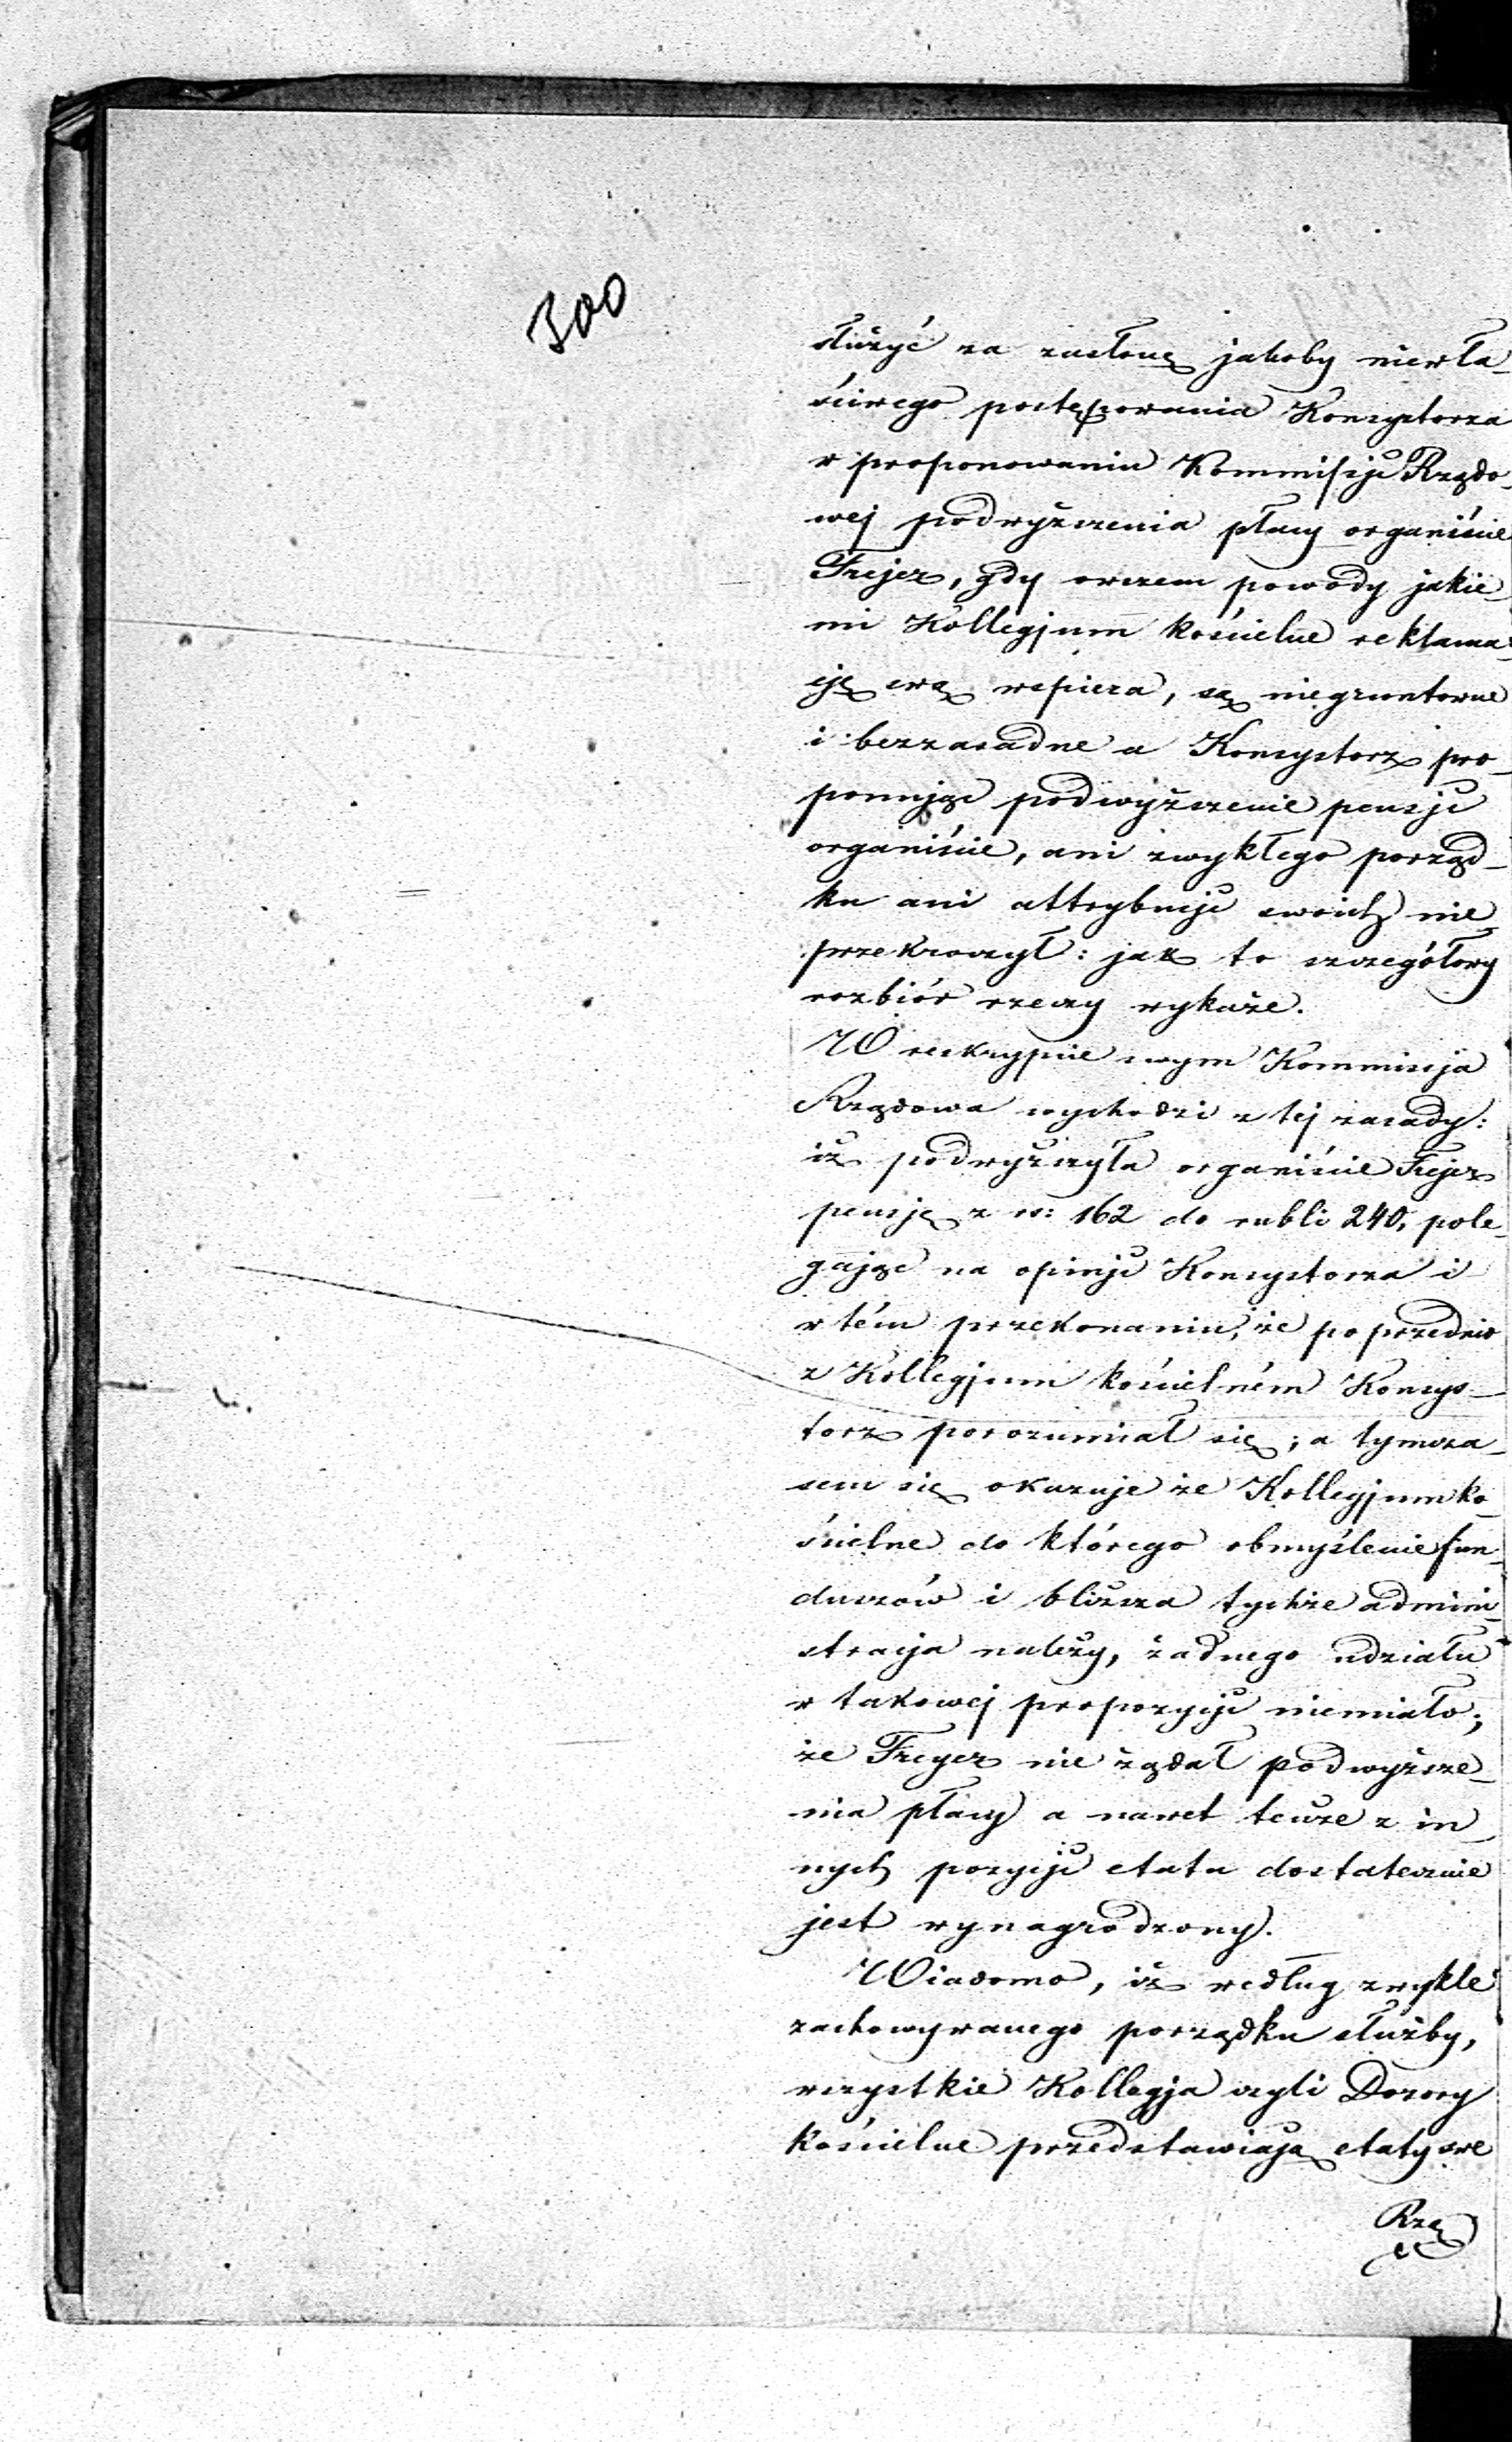 300
służyć za zasłonę jakoby niewła-
ściwego postępowania Konsystorza
w proponowaniu Kommissji Rządo-
wej podwyższenia płacy organiście
Frejer, gdy owszem powody jakie-
mi Kollegjum kościelne reklama-
cję swą wspiera, są niegruntowne
i bezzasadne a Konsystorz pro-
ponując podwyższenie pensji
organiście, ani zwykłego porząd-
ku ani attrybucji swoich nie
przekroczył: jak to szczegółowy
rozbiór rzeczy wykaże.
W reskrypcie swym Kommissja
Rządowa wychodzi z tej zasady:
iż podwyższyła organiście Frejer
pensję z rs: 162 do rubli 240, pole-
gając na opinji Konsystorza i
w tém przekonaniu, że poprzednio
z Kollegjum kościelném Konsys-
torz porozumiał się; a tymcza-
sem się okazuje że Kollegjum ko-
ścielne do którego obmyślenie fun-
duszów i bliższa tychże admini-
stracja należy, żadnego udziału
w takowej propozycji niemiało;
że Freyer nie żądał podwyższe-
nia płacy a nawet tenże z in-
nych pozycji etatu dostatecznie
jest wynagrodzony.
Wiadomo, iż według zwykle
zachowywanego porządku służby,
wszystkie Kollegja czyli Dozory
kościelne przedstawiają etaty swe
Rzą